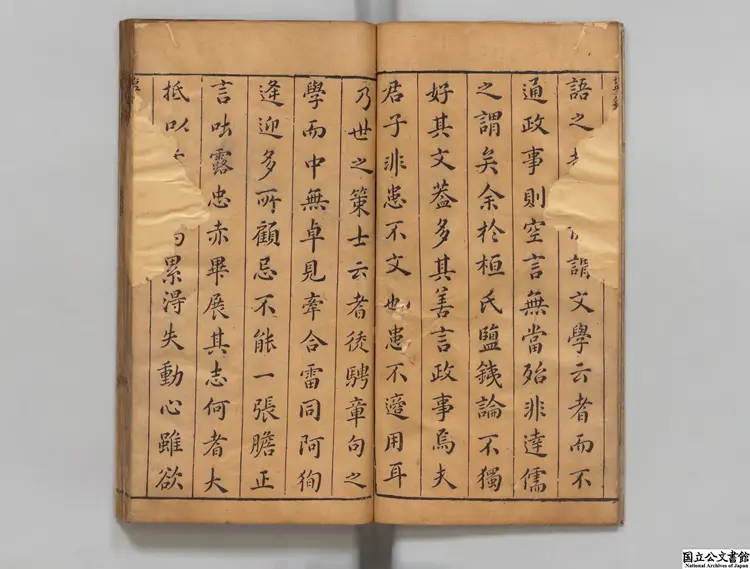 語之
謂文學云者而不
通政事則空言無當殆非達儒
之謂矣余於桓氏鹽鐵論不獨
好其文葢多其善言政事焉夫
君子非患不文也患不適用耳
乃世之策士云者徒騁章句之
學而中無卓見牽合雷同阿徇
逢迎多所顧忌不能一張膽正
言吐露忠赤畢展其志何者大
抵以
累得失動心雖欲
国立公文書館
National Archives of Japan